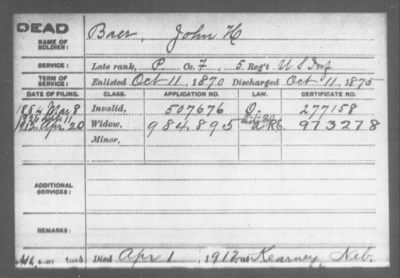 DEAD
NAME OF SOLDIER: Baer, John H
SERVICE: Late rank, P. Co. F, 5 Reg't U S Inf
TERM OF SERVICE: Enlisted Oct 11, 1870 Discharged Oct 11, 1875
DATE OF FILING. CLASS. APPLICATION NO. LAW. CERTIFICATE NO.
1884 May 8 Invalid, 507676 277158
1912 Apr 20 Widow, 984895 973278
Minor,
ADDITIONAL SERVICES:
REMARKS:
Died Apr 1, 1912, at Kearney, Neb.